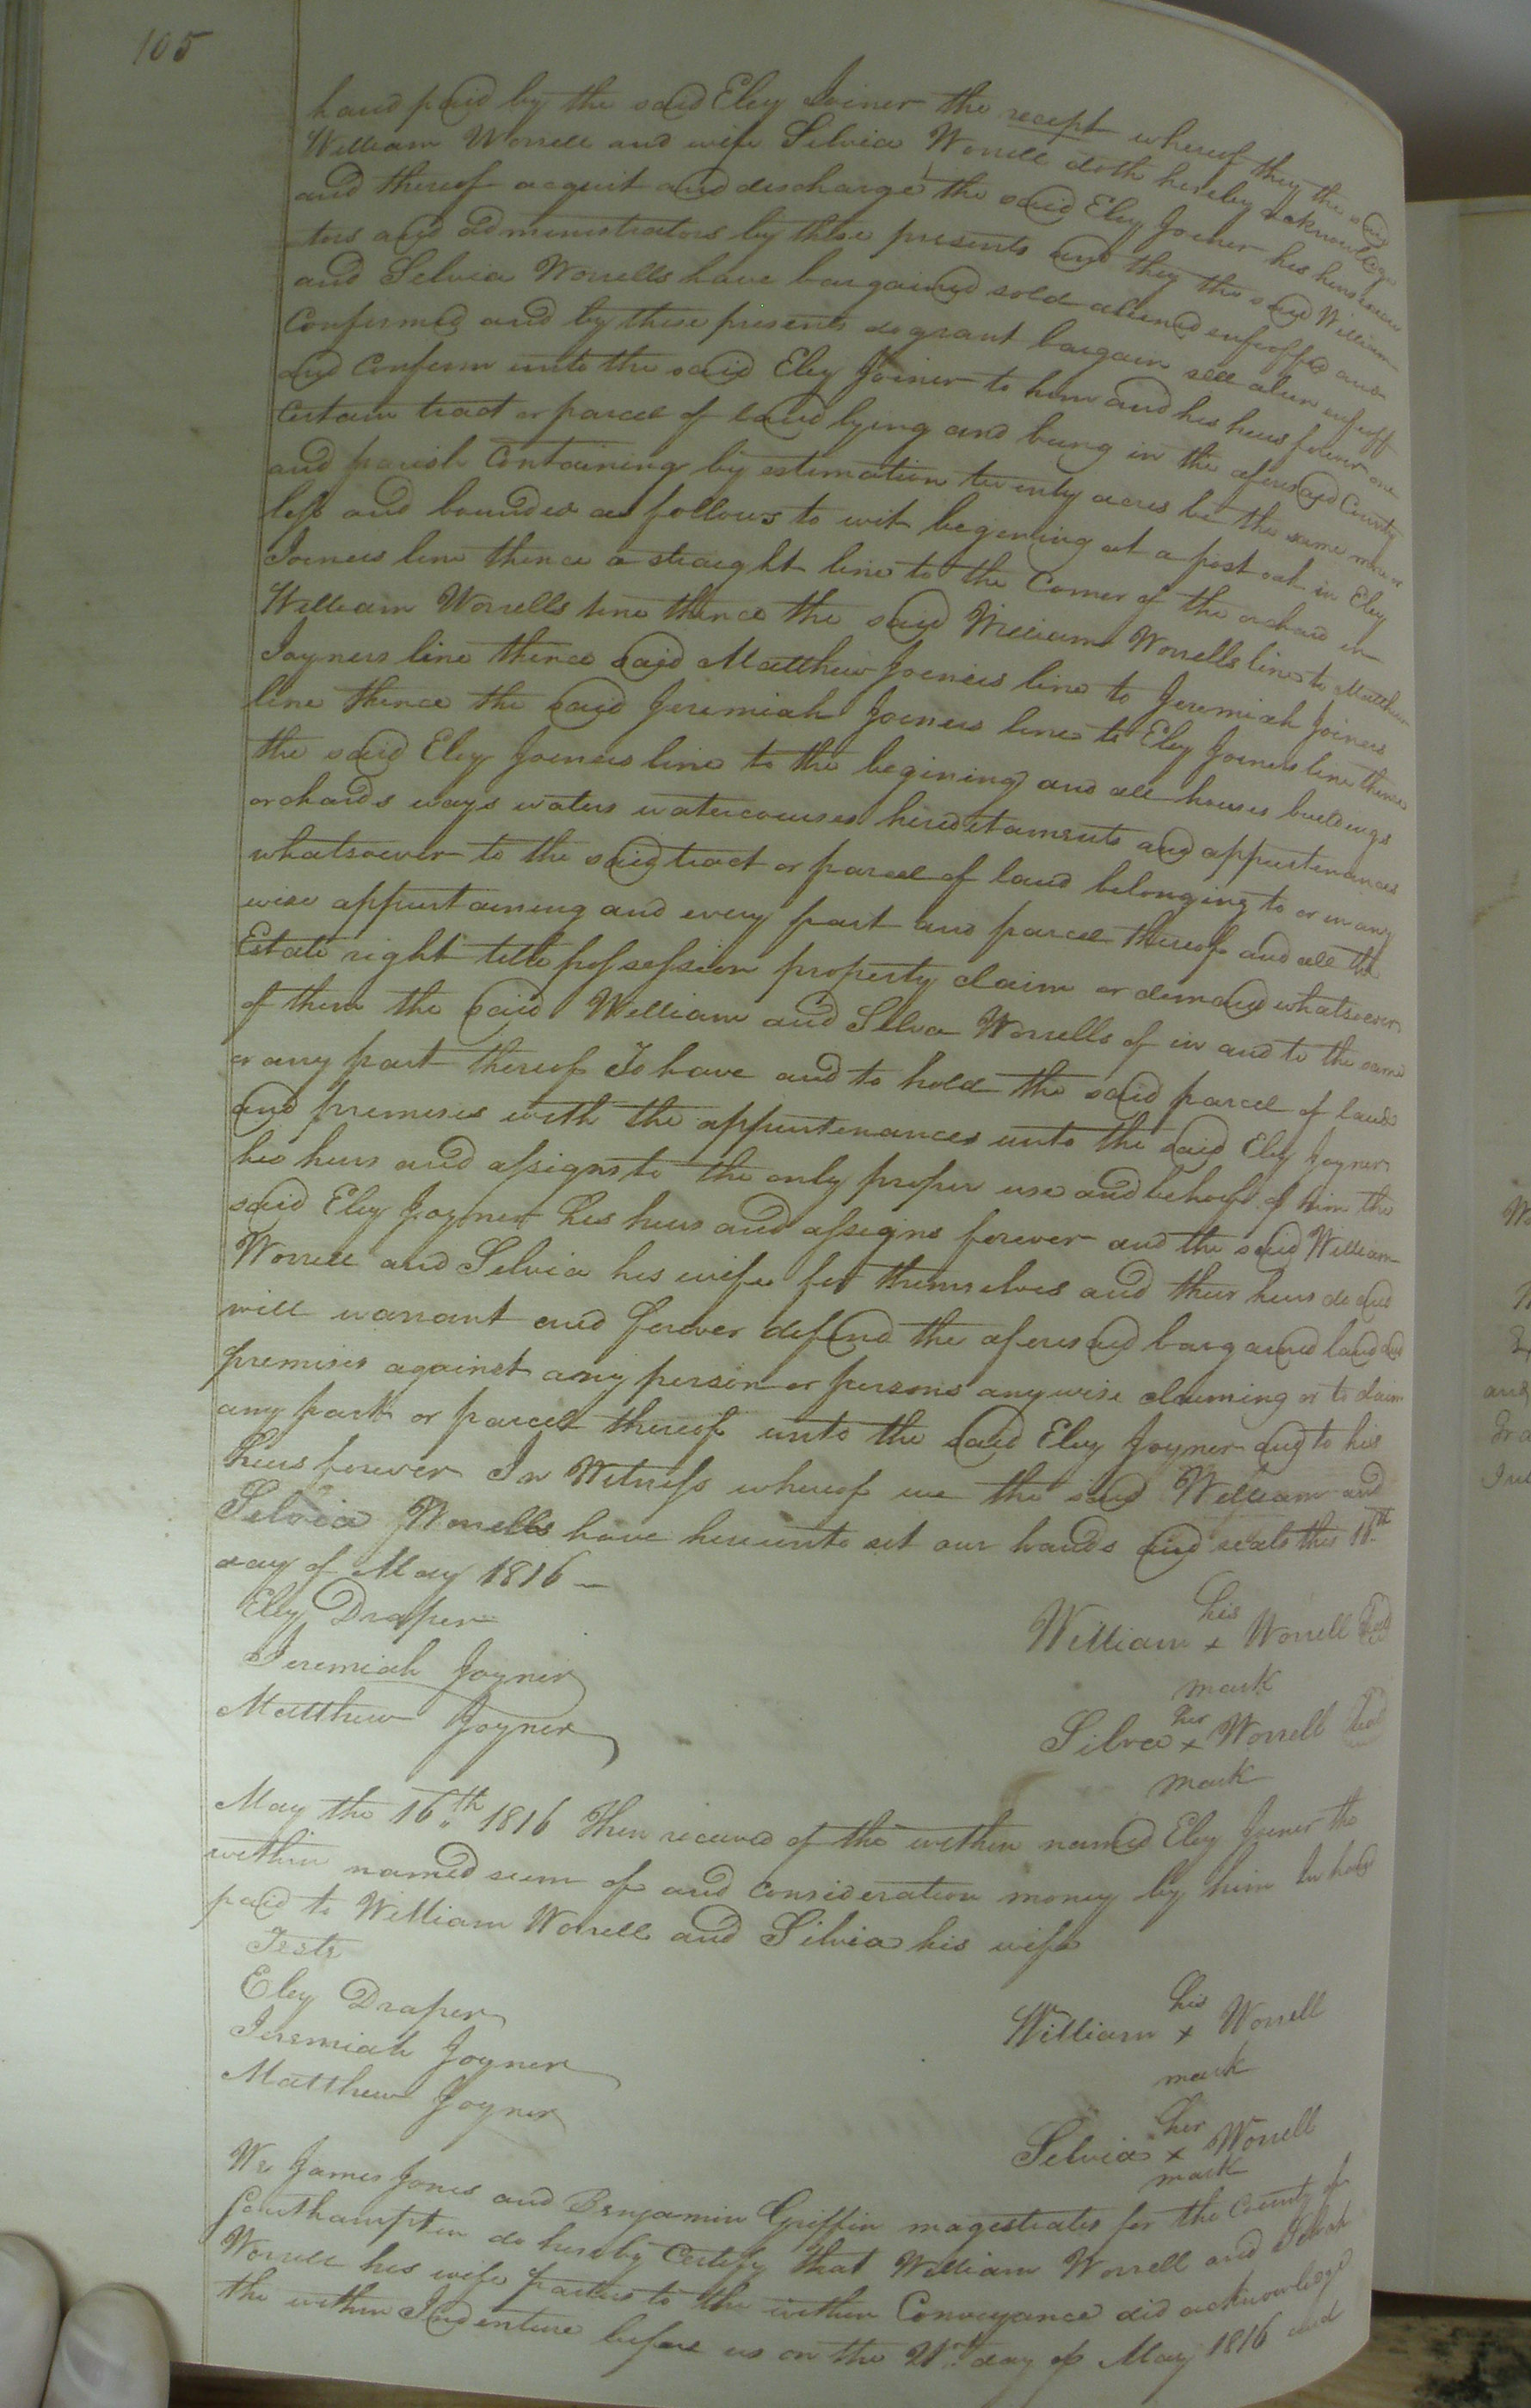 105
hand paid by the said Eley Joiner the recept whereof they the said
William Worrell and wife Silvia Worrell doth hereby acknowledge
and thereof acquit and discharge the said Eley Joiner his heirs execu
-tors and administrators by these presents and they the said William
and Selvia Worrells have bargained sold aliened enfeoffed and
Confermed and by these presents do grant bargain sell alien enfeoff
and Conferm unto the said Eley Joiner to him and his heirs forever one
Certain tract or parcel of land lying and being in the aforesaid County
and parish Containing by estimation twenty acres be the same more or
less and bounded as follows to wit begening at a post oak in Eley
Joiners line thence a straight line to the Corner of the orchard in
William Worrells line thence the said William Worrells line to Matthew
Joyners line thence said Matthew Joiners line to Jeremiah Joiners
line thence the said Jeremiah Joiners line to Eley Joiners line thence
the said Eley Joiners line to the begining and all houses buildings
orchards ways waters watercourses hereditaments and appurtenances
whatsoever to the said tract or parcel of land belonging to or in any
wise appurtaining and every part and parcel thereof and all the
Estate right title possession property claim or demand whatsoever
of them the said William and Silva Worrells of in and to the same
or any part thereof To have and to hold the said parcel of land
and premises with the appurtenances unto the said Eley Joyner
his heirs and assigns to the only proper use and behoof of him the
said Eley Joyner his heirs and assigns forever and the said William
Worrell and Selvia his wife for themselves and their heirs do and
will warrant and forever defend the aforesaid bargained land and
premises against any person or persons anywise claiming or to claim
any part or parcel thereof unto the said Eley Joyner and to his
heirs forever In Witness whereof we the said William and
Selvia Worrells have hereunto set our hands and seals this 16th
day of May 1816 —
Eley Draper
Jeremiah Joyner
Matthew Joyner
his
William x Worrell Seal
mark
her
Silva x Worrell Seal
mark
May the 16th 1816 Then received of the within named Eley Joiner the
within named sum of and consideration money by him in hand
paid to William Worrell and Silvia his wife
Teste
Eley Draper
Jeremiah Joyner
Matthew Joyner
his
William x Worrell
mark
her
Selvia x Worrell
mark
We James Jones and Benjamin Griffin magestrates for the County of
Southampton do hereby Certify that William Worrell and
Worrell his wife parties to the within Conveyance did acknowledge
the within Indenture before us on the 21st day of May 1816 and